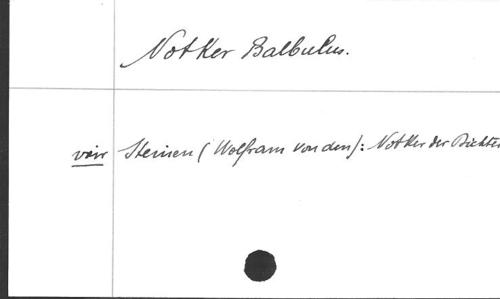 Notker Balbulus.
voir Steinen (Wolfram von den): Notker der Dichter